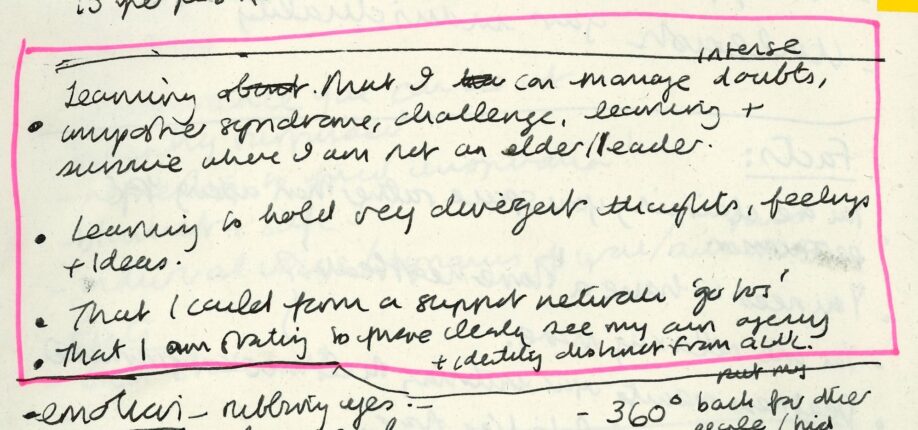 intense
Learning about. That I can manage doubts,
• imposter syndrome, challenge, learning +
survive where I am not an elder/leader.
• Learning to hold very divergent thoughts, feelings
+ ideas.
• That I could form a support network 'go tos'
• That I am starting to more clearly see my own agency
+ identity distinct from
put my
- emotion - rubbing eyes. -
- 360° back for other
people / hid